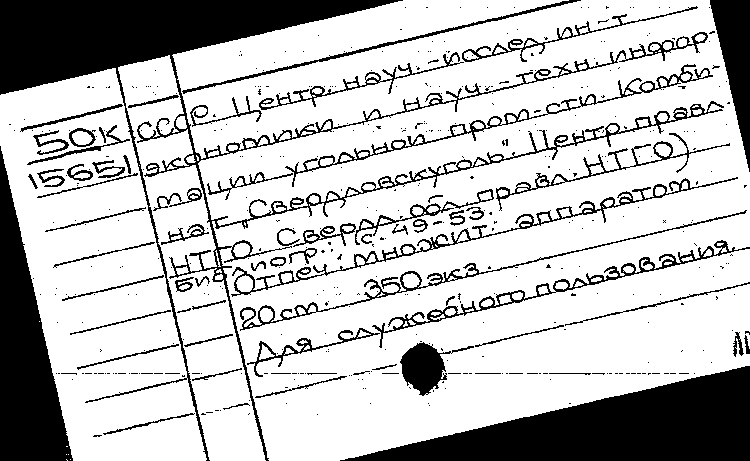 50К СССР. Центр. науч.-исслед. ин-т
15651 экономики и науч.-техн. инфор-
мации угольной пром-сти. Комби-
нат "Свердловскуголь". Центр. правл.
НТГО. Свердл. обл. правл. НТГО)
Библиогр.: с. 49-53.
Отпеч. множит. аппаратом.
20 см. 350 экз.
Для служебного пользования.